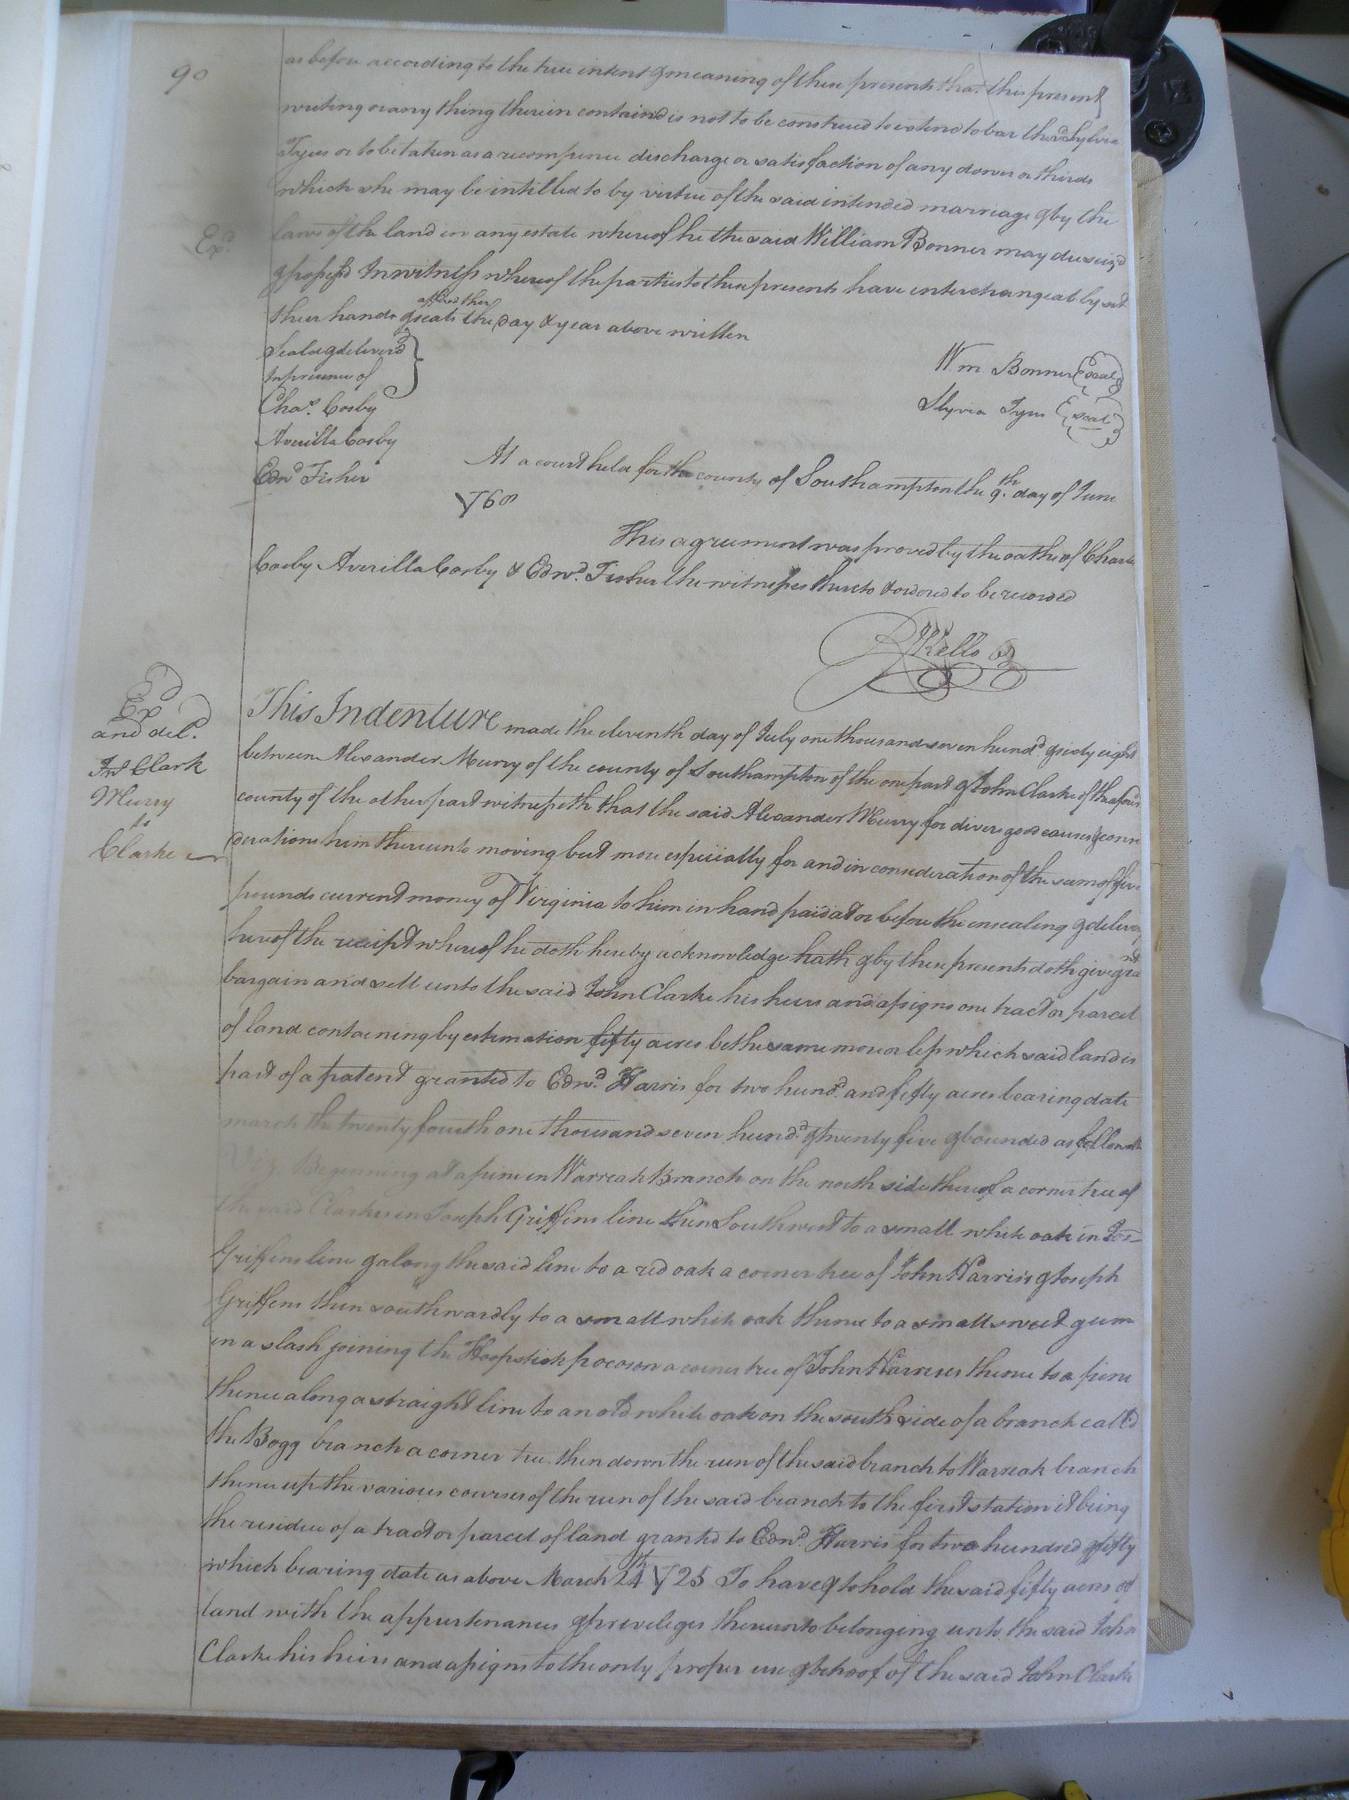 90
as before according to the true intent & meaning of these presents that this present
writing or any thing therein contained is not to be construed to extend to bar the sd Sylvia
Tyus or to be taken as a recompence discharge or satisfaction of any dower or thirds
which she may be intilled to by virtue of the said intended marriage & by the
Exd
laws of the land in any estate whereof he the said William Bonner may die seiz'd
& possess'd In witness whereof the parties to these presents have interchangeably set
affixed their
their hands & seals the day & year above written
Seal'd & deliver'd
In presence of
Wm Bonner seal
Chas. Cosby
Slyvia Tyus seal
Averilla Cosby
Edwd Fisher
At a court held for the county of Southampton the 9th. day of June
1768
This agreement was proved by the oaths of Charles
Cosby Averilla Cosby & Edwd. Fisher the witnesses thereto & ordered to be recorded
R Kello
Exd
and deld.
Jno Clark
Murry
to
Clarke
This Indenture made the eleventh day of July one thousand seven hundd & sixty eight
between Alexander Murry of the county of Southampton of the one part & John Clarke of the afors'd
county of the other part witnesseth that the said Alexander Murry for divers good causes & consi
derations him thereunto moving but more especially for and in consideration of the sum of five
pounds current money of Virginia to him in hand paid at or before the ensealing & delivery
hereof the receipt whereof he doth hereby acknowledge hath & by these presents doth give grant
bargain and sell unto the said John Clarke his heirs and assigns one tract or parcel
of land containing by estimation fifty acres be the same more or less which said land is
part of a patent granted to Edwd. Harris for two hundd. and fifty acres bearing date
march the twenty fourth one thousand seven hundd. & twenty five & bounded as followeth
Viz. Beginning at a pine in Warreak Branch on the north side thereof a corner tree of
the said Clarkes in Joseph Griffins line then Southward to a small white oak in Jos
Griffens line & along the said line to a red oak a corner tree of John Harris's & Joseph
Griffens then southwardly to a small white oak thence to a small sweet gum
in a slash joining the Hoopstick pocoson a corner tree of John Harrises thence to a pine
thence along a straight line to an old white oak on the south side of a branch call'd
the Bogg branch a corner tree then down the run of the said branch to Warreak branch
thence up the various courses of the run of the said branch to the first station it being
the residue of a tract or parcel of land grant'd to Edwd. Harris for two hundred & fifty
which bearing date as above March 24th 1725 To have & to hold the said fifty acres of
land with the appurtenances & priveleges thereunto belonging unto the said John
Clarke his heirs and assigns to the only proper use & behoof of the said John Clarke